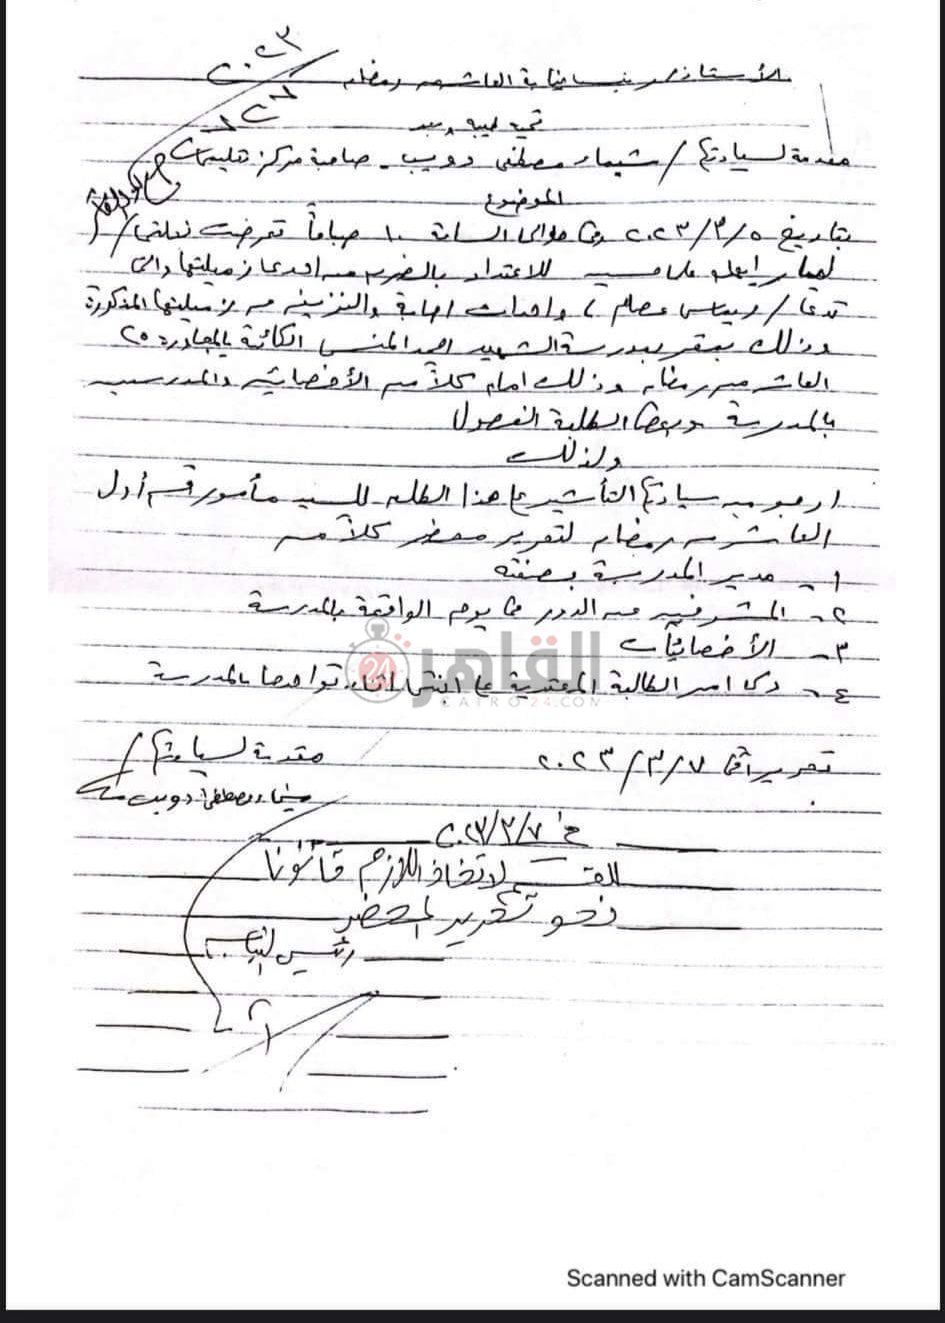 ٢٠٢٣
الأستاذ / رئيس نيابة العاشر من رمضان
تحية طيبة وبعد
مقدمة لسيادتكم / شيماء مصطفى دويب - صاحبة مركز تعليمات
الموضوع
بتاريخ ٢٠٢٣/٣/٥ وفى حوالى الساعة ١٠ صباحاً تعرضت نجلتى /
للاعتداء بالضرب من احدى زميلتها والتى
تدعى / عصام واحداث اصابة والنزيف من زميلتها المذكورة
وذلك بمقر بمدرسة الشهيد احمد المنسى الكائنة بالمجاورة ٢٥
العاشر من رمضان وذلك امام كلاً من الأخصائية والمدرسين
بالمدرسة وبعض الطلبة الفصول
ولذلك
ارجو من سيادتكم التأشير على هذا الطلب للسيد مأمور قسم أول
العاشر من رمضان لتحرير محضر كلاً من
١- مدير المدرسة بصفته
٢- المشرفين عن الدور فى يوم الواقعة بالمدرسة
٣- الأخصائيات
٤- ولى امر الطالبة المعتدية على ابنتى اثناء تواجدها بالمدرسة
القاهرة 24
CAIRO24.COM
تحريراً فى ٢٠٢٣/٣/٧
مقدمة لسيادتكم /
شيماء مصطفى دويب
فى ٢٠٢٣/٣/٧
القسم لاتخاذ اللازم قانونا
نحو تحرير المحضر
رئيس النيابة
Scanned with CamScanner